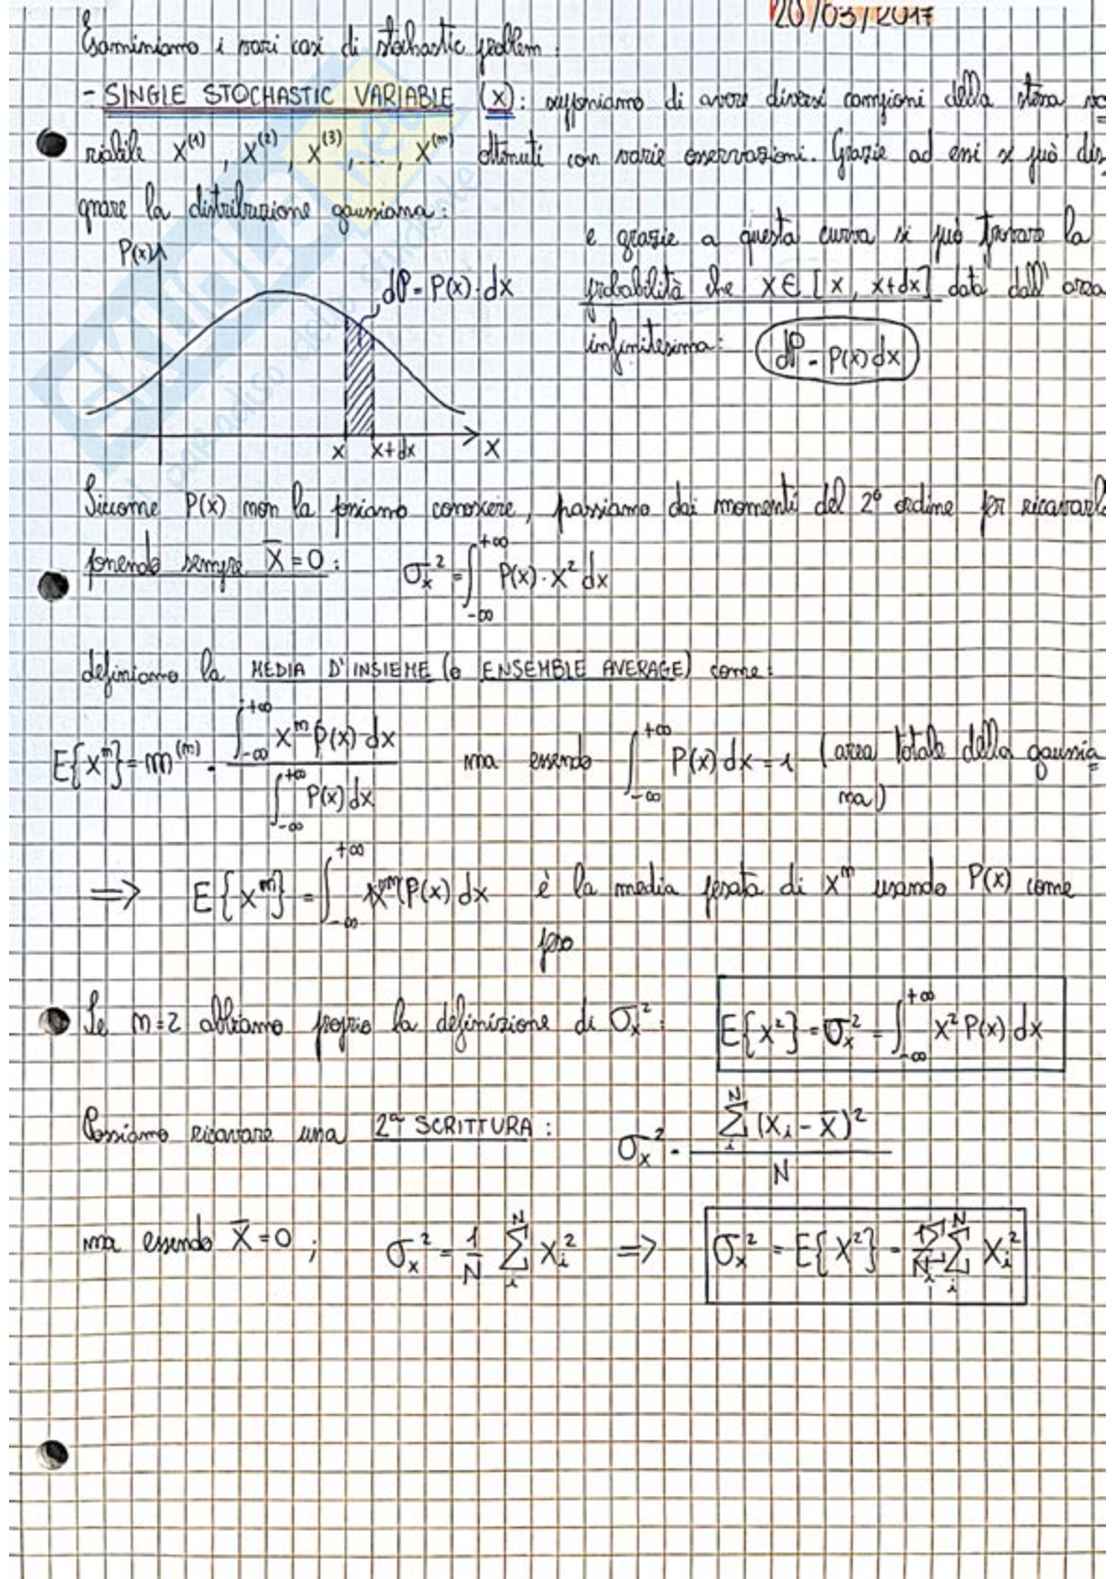 20/03/2017
Esaminiamo i vari casi di stochastic problem:
- SINGLE STOCHASTIC VARIABLE (x): supponiamo di avere diversi campioni della stessa va
riabile x⁽¹⁾, x⁽²⁾, x⁽³⁾, ..., x⁽ⁿ⁾ ottenuti con varie osservazioni. Grazie ad essi si può dise
gnare la distribuzione gaussiana:
P(x)
dP = P(x)·dx
x x+dx x
e grazie a questa curva si può trovare la
probabilità che x ∈ [x, x+dx] data dall'area
infinitesima: dP = P(x)dx
Siccome P(x) non la possiamo conoscere, passiamo dai momenti del 2° ordine per ricavarla
ponendo sempre x̄ = 0: σₓ² = ∫₋∞^+∞ P(x)·x² dx
definiamo la MEDIA D'INSIEME (o ENSEMBLE AVERAGE) come:
E{xⁿ} = m⁽ⁿ⁾ = ∫₋∞^+∞ xⁿ P(x) dx / ∫₋∞^+∞ P(x) dx ma essendo ∫₋∞^+∞ P(x) dx = 1 (area totale della gaussia
na)
⟹ E{xⁿ} = ∫₋∞^+∞ xⁿ P(x) dx è la media pesata di xⁿ usando P(x) come
peso
Se n=2 abbiamo proprio la definizione di σₓ²: E{x²} = σₓ² = ∫₋∞^+∞ x² P(x) dx
Possiamo ricavare una 2ª SCRITTURA: σₓ² = Σᵢ^N (xᵢ - x̄)² / N
ma essendo x̄ = 0; σₓ² = 1/N Σᵢ^N xᵢ² ⟹ σₓ² = E{x²} = 1/N Σᵢ^N xᵢ²